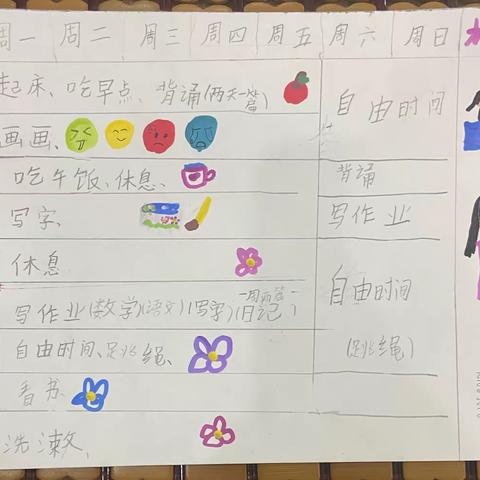 周一 周二 周三 周四 周五 周六 周日
起床、吃早点、背诵(两天一篇)
自由时间
画画、
吃午饭、休息、
背诵
写字、
写作业
休息
自由时间
写作业(数学)(语文)(写字)(日记一周两篇)
自由时间、跳绳、
(跳绳)
看书、
洗漱、